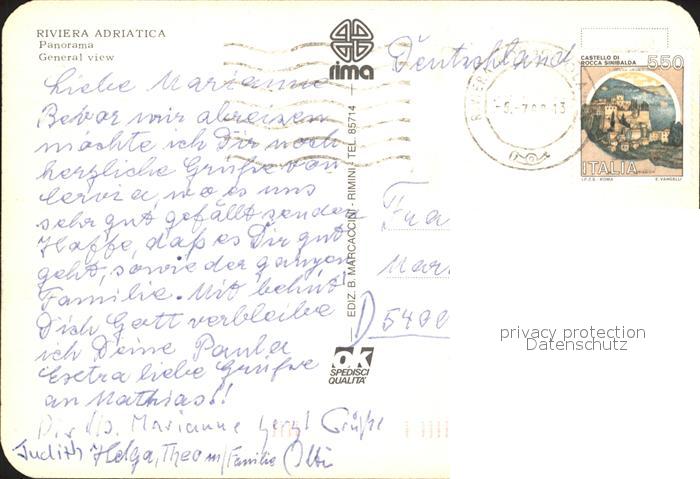 RIVIERA ADRIATICA
Panorama
General view
rima
Deutschland
CASTELLO DI
ROCCA SINIBALDA
550
ITALIA
I.P.Z.S. - ROMA E. VANGELLI
Liebe Marianne
Bevor wir abreisen
möchte ich Dir noch
herzliche Grüße von
Cervia, wo es uns
sehr gut gefällt senden
Hoffe, daß es Dir gut
geht, sowie der ganzen
Familie. Mit behüt
Dich Gott verbleibe
ich Deine Paula
Extra liebe Grüße
an Mathias!!
Marianne Grüße
Judith Helga, Familie
EDIZ. B. MARCACCINI - RIMINI - TEL. 85714
Fra
Mar
D 5400
ok
SPEDISCI
QUALITA'
privacy protection
Datenschutz